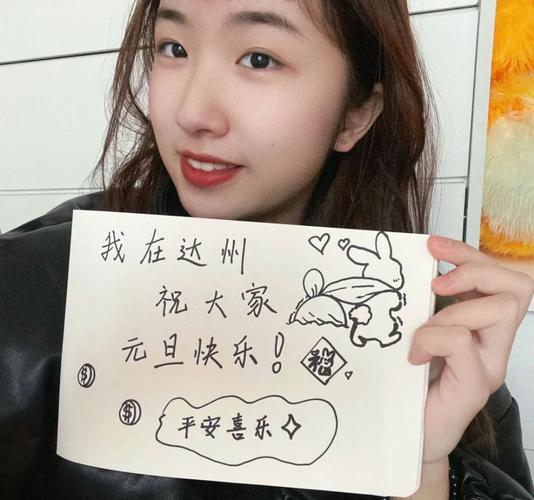 我在达州
祝大家
元旦快乐！
福
$
$
平安喜乐